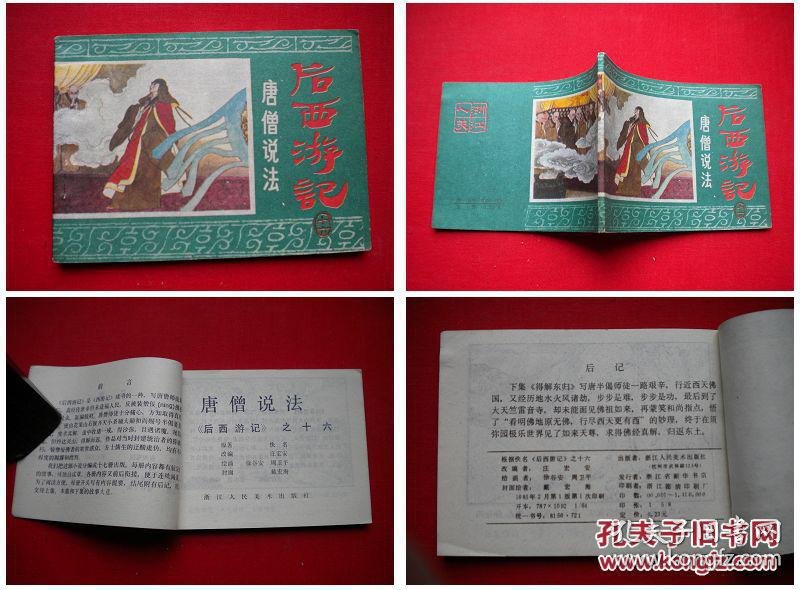 后西游记
唐僧说法
后西游记
唐僧说法
浙江
人美
前言
唐僧说法
《后西游记》之十六
原著 佚名
改编 汪宏安
绘画 徐谷安 周卫平
封面 戴宏海
浙江人民美术出版社
后记
下集《得解东归》写唐半偈师徒一路艰辛，行近西天佛
国，又经历地水火风诸劫，步步是难，步步是功，最后到了
大天竺雷音寺，却未能面见佛祖如来，再蒙笑和尚指点，悟
了“看明佛地原无佛，行尽西天更有西”的妙理，终于在须
弥国极乐世界见了如来天尊，求得佛经真解，归返东土。
根据佚名《后西游记》之十六
改编者：汪宏安
绘画者：徐谷安 周卫平
封面绘者：戴宏海
1985年2月第1版第1次印刷
开本：787×1092 1/64
统一书号：8156·721
出版者：浙江人民美术出版社
发行者：浙江省新华书店
印刷者：浙江德清印刷厂
印数：
印张：1 5/8
定价：0.23元
孔夫子旧书网
www.kongfz.com